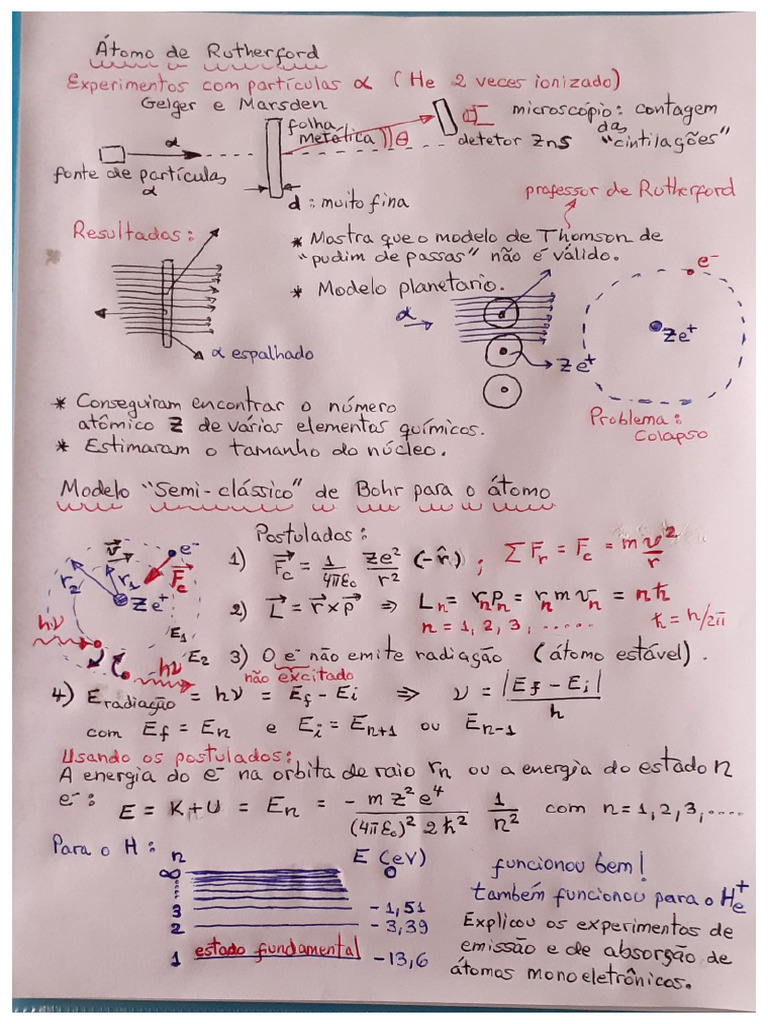 Átomo de Rutherford
Experimentos com partículas α (He 2 veces ionizado)
Geiger e Marsden
folha
metálica
θ
microscópio: contagem
das
detetor ZnS "cintilações"
α
fonte de partículas
α
d : muito fina
professor de Rutherford
Resultados:
* Mostra que o modelo de Thomson de
"pudim de passas" não é válido.
* Modelo planetario.
e⁻
α
Ze⁺
Ze⁺
α espalhado
Problema:
Colapso
* Conseguiram encontrar o número
atômico Z de vários elementos químicos.
* Estimaram o tamanho do núcleo.
Modelo "Semi-clássico" de Bohr para o átomo
Postulados:
v⃗ e⁻
r₂ r₁ F⃗c
Ze⁺
hν
E₁
E₂
hν
1) F⃗c = 1/4πε₀ Ze²/r² (-r̂) ; ΣF⃗r = F⃗c = m v²/r
2) L⃗ = r⃗ x p⃗ ⇒ Ln = rn pn = rn m vn = nħ
n = 1, 2, 3, ..... ħ = h/2π
3) O e⁻ não emite radiação (átomo estável).
não excitado
4) Eradiação = hν = Ef - Ei ⇒ ν = |Ef - Ei|/h
com Ef = En e Ei = En+1 ou En-1
Usando os postulados:
A energia do e⁻ na orbita de raio rn ou a energia do estado n
e⁻: E = K+U = En = -m z² e⁴/(4πε₀)² 2ħ² 1/n² com n = 1, 2, 3, ....
Para o H:
n E (eV)
∞ 0
3 -1,51
2 -3,39
1 estado fundamental -13,6
funcionou bem!
também funcionou para o He⁺
Explicou os experimentos de
emissão e de absorção de
átomos monoeletrônicos.